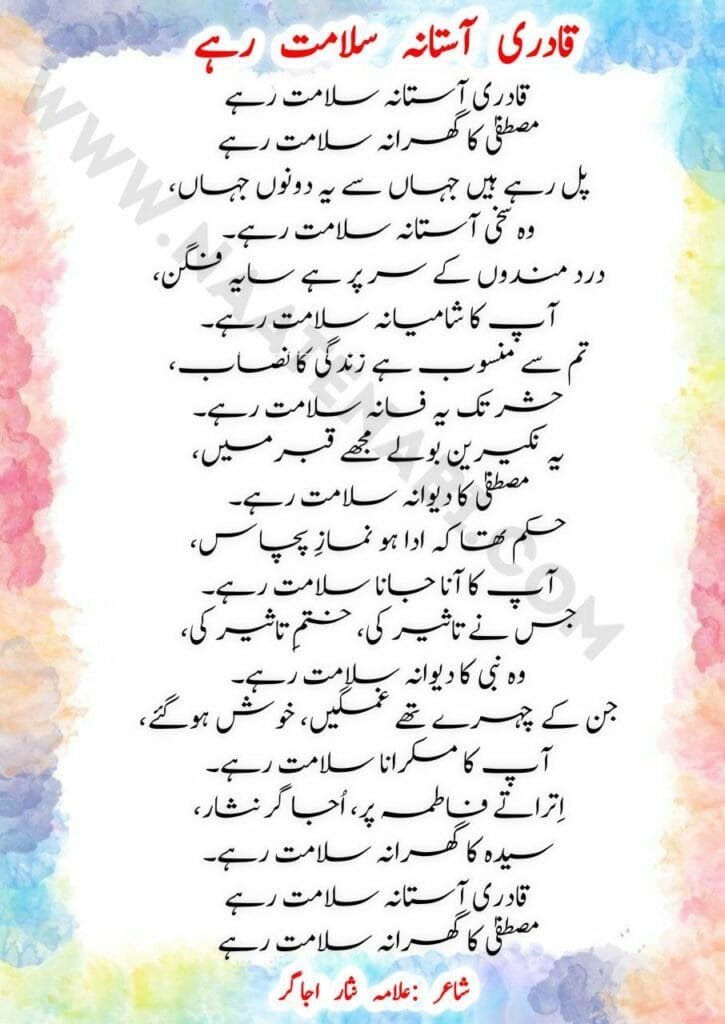 قادری آستانہ سلامت رہے
قادری آستانہ سلامت رہے
مصطفیٰ کا گھرانہ سلامت رہے
پل رہے ہیں جہاں سے یہ دونوں جہاں،
وہ سخی آستانہ سلامت رہے۔
درد مندوں کے سر پر ہے سایہ فگن،
آپ کا شامیانہ سلامت رہے۔
تم سے منسوب ہے زندگی کا نصاب،
حشر تک یہ فسانہ سلامت رہے۔
یہ نکیرین بولے مجھے قبر میں،
مصطفیٰ کا دیوانہ سلامت رہے۔
حکم تھا کہ ادا ہو نمازِ پچاس،
آپ کا آنا جانا سلامت رہے۔
جس نے تاثیر کی، ختمِ تاثیر کی،
وہ نبی کا دیوانہ سلامت رہے۔
جن کے چہرے تھے غمگیں، خوش ہوگئے،
آپ کا مسکرانا سلامت رہے۔
اِتراتے فاطمہ پر، اُجاگر نثار،
سیدہ کا گھرانہ سلامت رہے۔
قادری آستانہ سلامت رہے
مصطفیٰ کا گھرانہ سلامت رہے
شاعر :علامہ نثار اجاگر
WWW.NAATENABI.COM